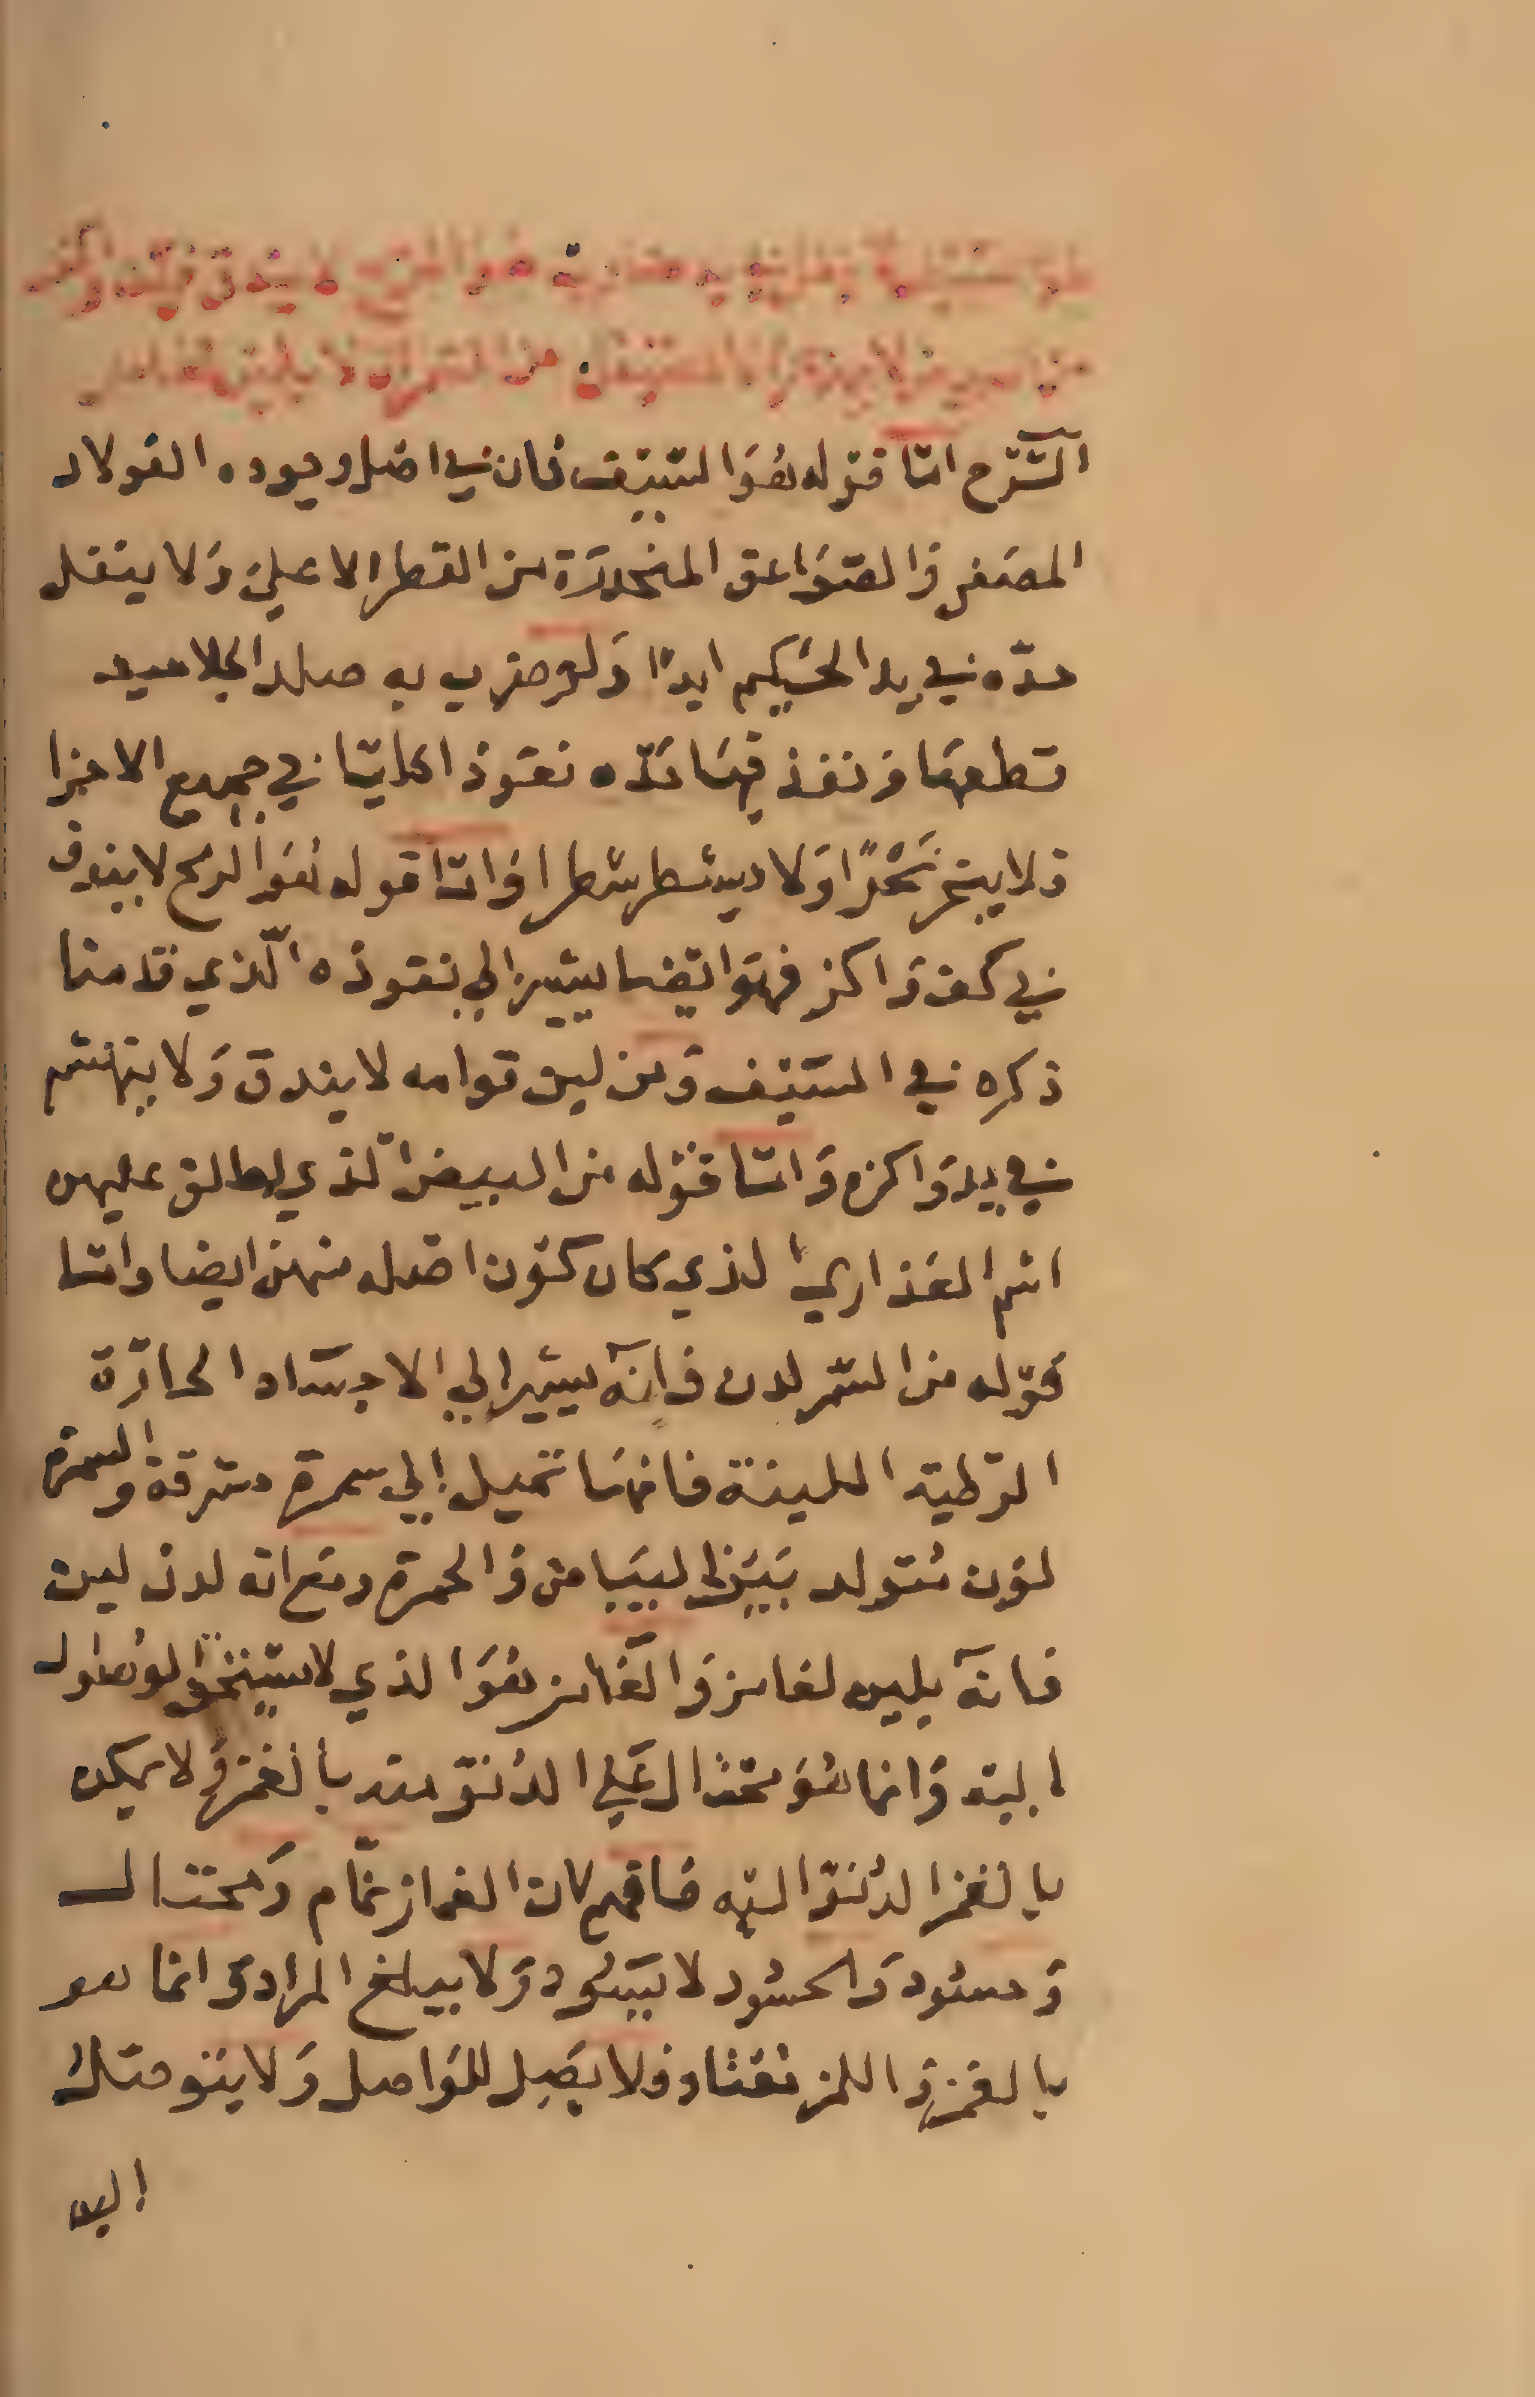 هو الرمح لا يندق في كف واكز
من السمر لدن لا يلين لغامز
الشرح اما قوله هو السيف فان في اصل وجوده الفولاد
المصفى والصواعق المنحدرة من القطر الاعلى ولا ينفل
حده في يد الحكيم ابدا ولو ضرب به صلد الجلاميد
قطعها ونفذ فيها حده نفوذا كليا في جميع الاجزا
ولا ينحز نحزا ولا ينشطر شطرا واما قوله هو الرمح لا يندق
في كف واكز فهو ايضا يشير الى نفوذه الذي قدمنا
ذكره في السيف ومن لين قوامه لا يندق ولا ينهشم
في يد واكزه واما قوله من البيض الذي يطلق عليهن
اسم العذارى الذي كان كون اصله منهن ايضا واما
قوله من السمر لدن فانه يشير الى الاجساد الحارة
الرطبة اللينة فانها تميل الى سمرة مشرقة والسمرة
لون متولد بين البياض والحمرة ومع انه لدن لين
فانه يلين لغامز والغامز هو الذي لا يستحق الوصول
اليه وانما هو محتال على الدنو منه بالغمز ولا يمكن
بالغمز الدنو اليه فافهم لان الغماز نمام ومحتال
وحسود والحسود لا يسود ولا يبلغ المراد وانما هو
بالغمز واللمز نقاد ولا يصل للواصل ولا ينومتك
اليه